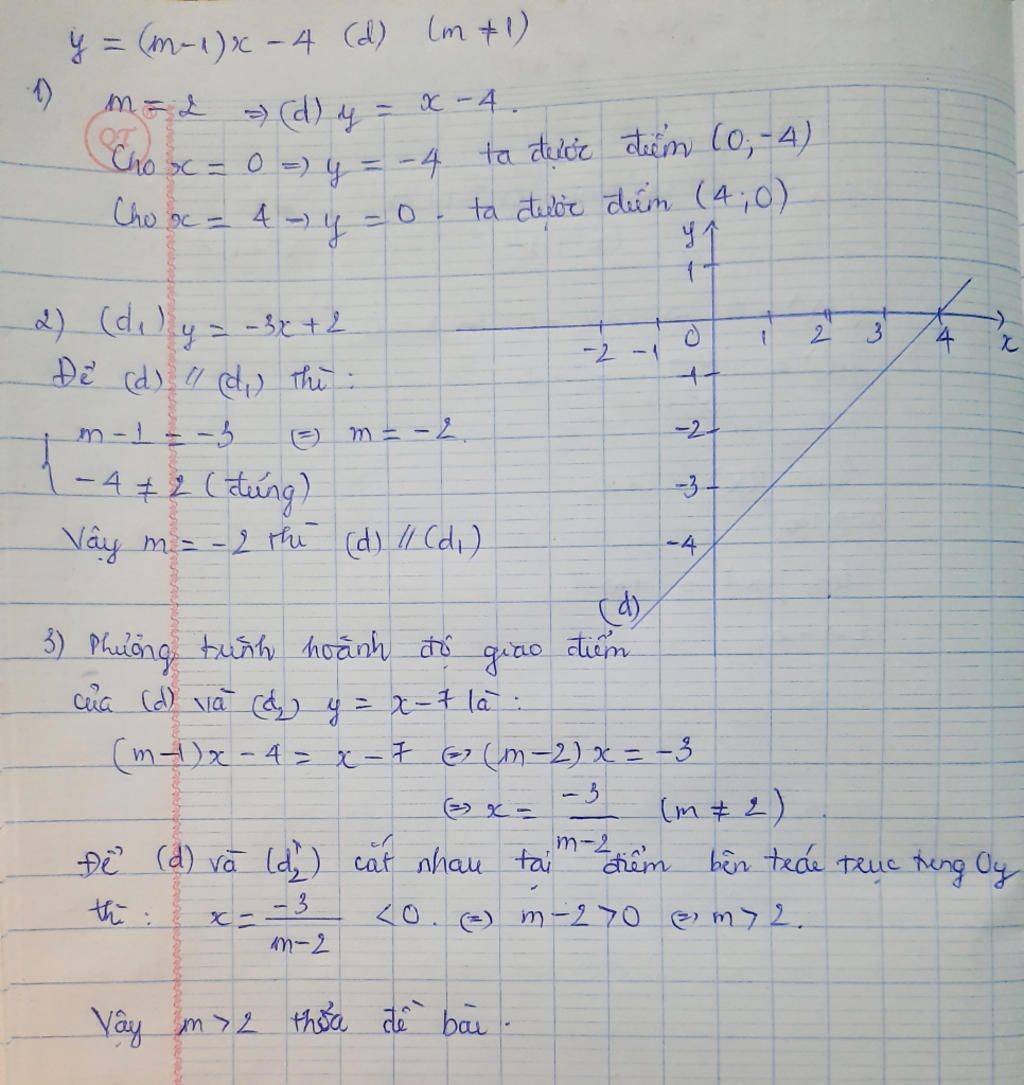 y = (m-1)x - 4 (d) (m ≠ 1)
1) m = 2 ⇒ (d) y = x - 4.
Cho x = 0 ⇒ y = -4 ta được điểm (0;-4)
Cho x = 4 ⇒ y = 0. ta được điểm (4;0)
y
1
2) (d₁) y = -3x + 2
-2 -1 0 1 2 3 4 x
Để (d) // (d₁) thì:
-1
m - 1 = -3 ⇔ m = -2.
-2
-4 ≠ 2 (đúng)
-3
Vậy m = -2 thì (d) // (d₁)
-4
(d)
3) Phương trình hoành độ giao điểm
của (d) và (d₂) y = x - 7 là:
(m-1)x - 4 = x - 7 ⇔ (m-2)x = -3
⇔ x = -3/(m-2) (m ≠ 2)
Để (d) và (d₂) cắt nhau tại điểm bên trái trục tung Oy
thì: x = -3/(m-2) < 0. ⇔ m - 2 > 0 ⇔ m > 2.
Vậy m > 2 thỏa đề bài.